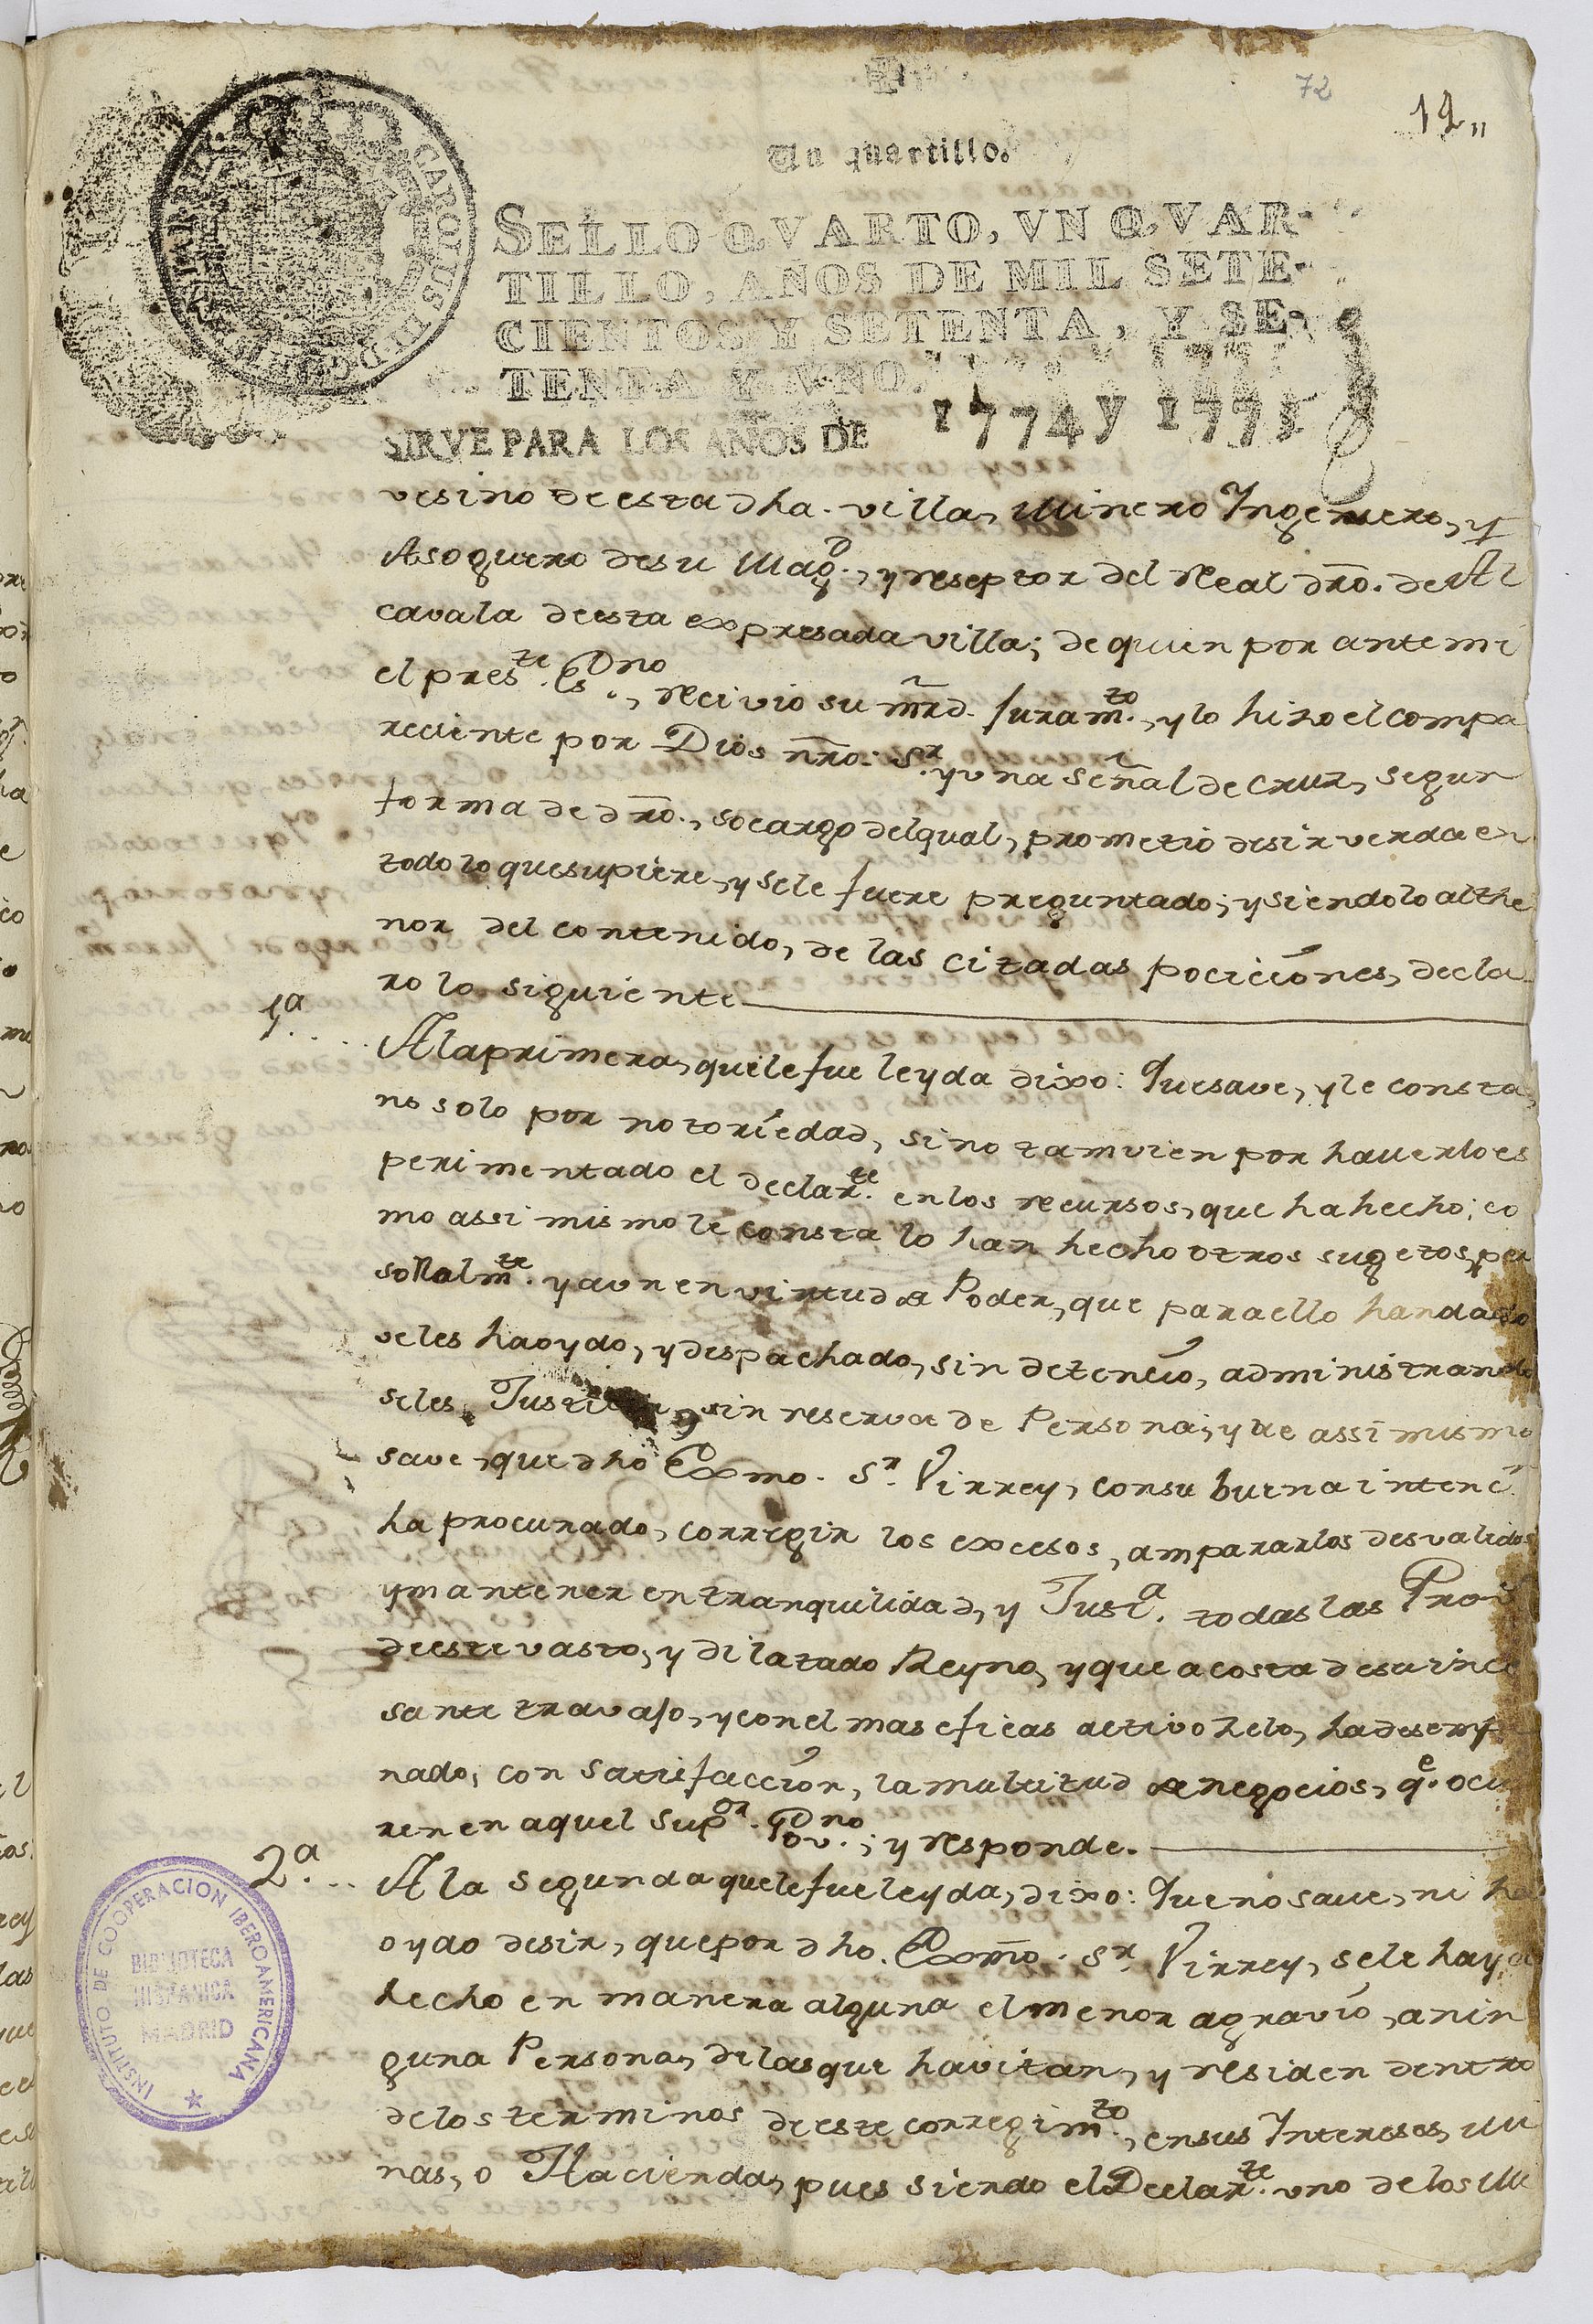 72
12,,
Un quartillo.
SELLO QVARTO, VN QVAR-
TILLO, AÑOS DE MIL SETE-
CIENTOS Y SETENTA, Y SE-
TENTA Y VNO.
SIRVE PARA LOS AÑOS DE 1774 y 1775
vesino de esta dha. villa, Minero Ingeniero, y
Asoguero de su Magd., y reseptor del Real dro. de Al
cavala de esta expresada villa; de quien por ante mi
el preste. Esno., recivio su mrd. juramto., y lo hizo el compa
reciente por Dios nro. Sr. y una señal de cruz, segun
forma de dro., so cargo del qual, prometio desir verdad en
todo lo que supiere, y se le fuere preguntado; y siendolo al the
nor del contenido, de las citadas pociciones, decla
ro lo siguiente
1a.... A la primera, que le fue leyda dixo: Que save, y le consta,
no solo por notoriedad, sino tamvien por haverlo es
perimentado el declarte. en los recursos, que ha hecho; co
mo assi mismo le consta lo han hecho otros sugetos, per
sonalmte. y aun en virtud de Poder, que para ello han dado
veles ha oydo, y despachado, sin detencio, administrando
seles, Justicia, sin reserva de Persona; y que assi mismo
save, que dho Exmo. Sr. Virrey, con su buena intenc.
ha procurado, corregir los excesos, amparar los desvalidos
y mantener en tranquilidad, y Justa. todas las Prov
de este vasto, y dilatado Reyno, y que a costa de su ince
sante travajo, y con el mas eficas activo zelo, ha desempe
nado, con satisfaccion, la multitud de negocios, qe. ocu
rren en aquel Supor. Govno.; y responde.
2a... A la segunda que le fue leyda, dixo: Que no save, ni ha
oydo desir, que por dho. Exmo. Sr. Virrey, se le haya
hecho en manera alguna el menor agravio, a nin
guna Persona, de las que havitan, y residen dentro
de los terminos de este corregimto., en sus Intereses, Mi
nas, o Haciendas, pues siendo el Declarte. uno de los Mi
CAROLUS III D G
INSTITUTO DE COOPERACION IBEROAMERICANA
BIBLIOTECA
HISPANICA
MADRID